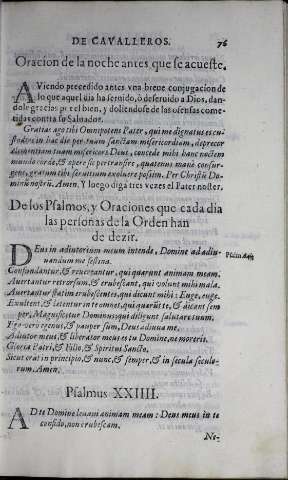 DE CAVALLEROS. 76
Oracion de la noche antes que se acueste.
AViendo precedido antes vna breve conjugacion de
lo que aquel dia ha seruido, ò deseruido a Dios, dan-
dole gracias por el bien, y doliendose de las ofensas come-
tidas contra su Saluador.
Gratias ago tibi Omnipotens Pater, qui me dignatus es cu-
stodire in hac die per tuam sanctam misericordiam, deprecor
clementiam tuam misericors Deus, concede mihi hanc noctem
mundo corde, & opere sic pertransire, quatenus manè consur-
gens, gratum tibi seruitium exoluere possim. Per Christũ Do-
minũ nostrũ. Amen. Y luego diga tres vezes el Pater noster.
De los Psalmos, y Oraciones que cada dia
las personas de la Orden han
de dezir.
DEus in adiutorium meum intende, Domine ad adiu-
uandum me festina.
Confundantur, & reuereantur, qui quærunt animam meam.
Auertantur retrorsum, & erubescant, qui volunt mihi mala.
Auertantur statim erubescentes, qui dicunt mihi: Euge, euge.
Exultent, & lætentur in te omnes qui quærũt te, & dicant sem
per, Magnificetur Dominus: qui diligunt salutare tuum.
Ego vero egenus, & pauper sum, Deus adiuua me.
Adiutor meus, & liberator meus es tu Domine, ne moreris.
Gloria Patri, & Filio, & Spiritui Sancto.
Sicut erat in principio, & nunc, & semper, & in secula seculo-
rum. Amen.
Psalmus XXIIII.
AD te Domine leuaui animam meam: Deus meus in te
confido, non erubescam.
Ne-